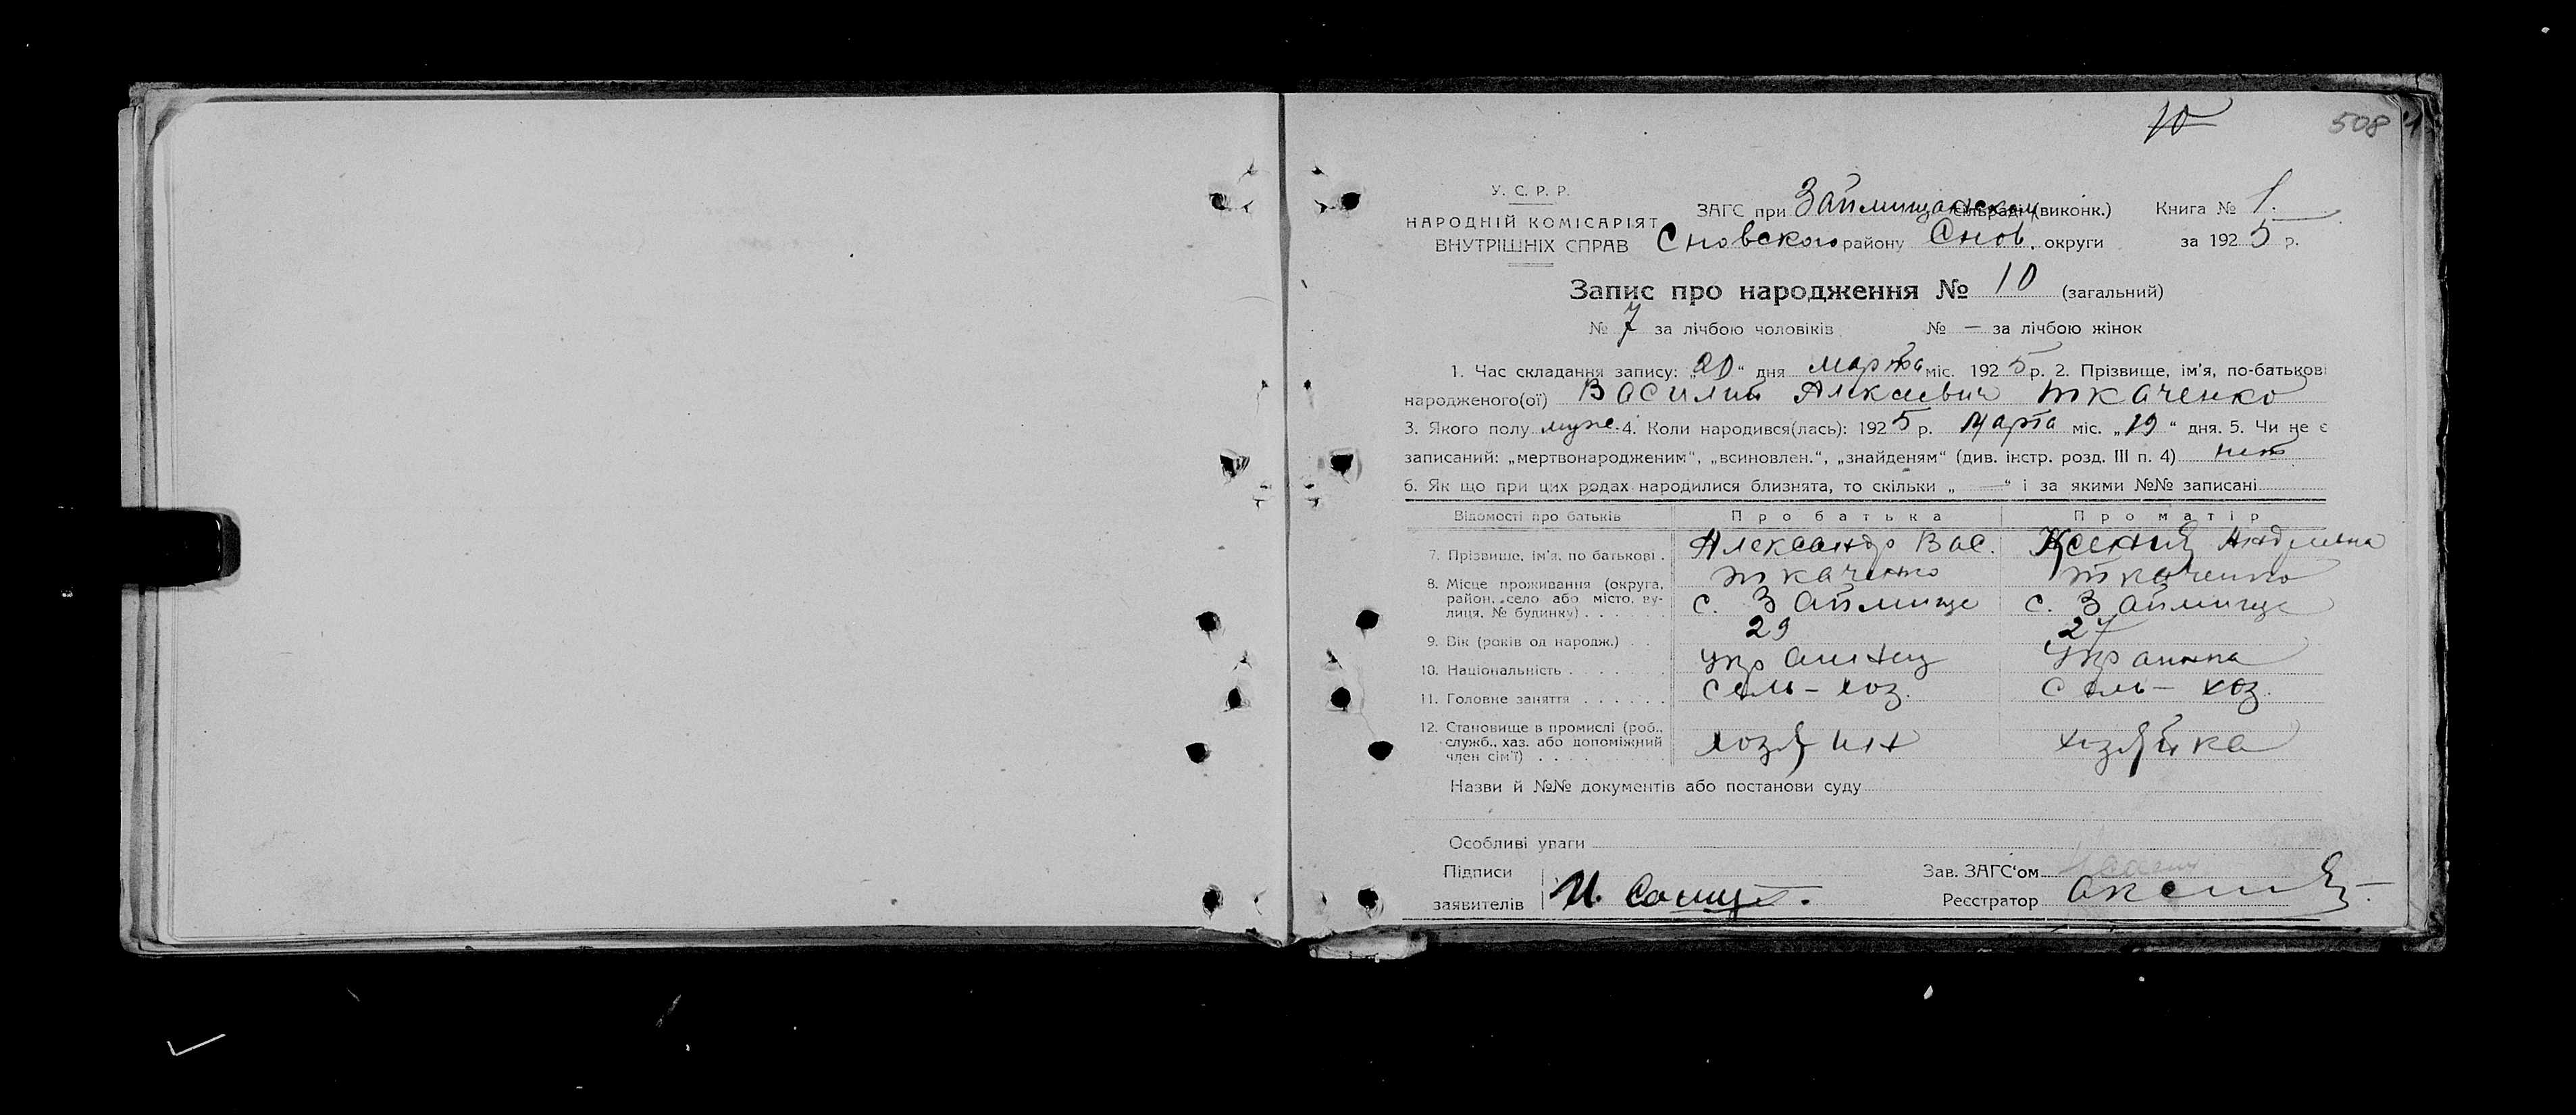 10
508
У. С. Р. Р.
НАРОДНІЙ КОМІСАРІЯТ
ВНУТРІШНІХ СПРАВ
ЗАГС при Займищанском сільраді (виконк.) Книга № 1.
Сновского району Снов. округи за 1925 р.
Запис про народження № 10 (загальний)
№ 7 за лічбою чоловіків № — за лічбою жінок
1. Час складання запису: „20“ дня марта міс. 1925 р. 2. Прізвище, ім'я, по-батькові
народженого(ої) Василий Алексеевич Ткаченко
3. Якого полу муж. 4. Коли народився(лась): 1925 р. Марта міс. „19“ дня. 5. Чи не є
записаний: „мертвонародженим“, „всиновлен.“, „знайденям“ (див. інстр. розд. III п. 4) нет
6. Як що при цих родах народилися близнята, то скільки „—“ і за якими №№ записані
Відомості про батьків Про батька Про матір
7. Прізвище, ім'я, по батькові . Александр Вас. Ксения Андреевна
Ткаченко Ткаченко
8. Місце проживання (округа,
район, село або місто, ву-
лиця, № будинку) . . . . . с. Займище с. Займище
9. Вік (років од народж.) . . 29 27
10. Національність . . . . . . . Украинец Украинка
11. Головне заняття . . . . . . Сель-хоз. Сель-хоз.
12. Становище в промислі (роб.,
служб., хаз. або допоміжний
член сім'ї) . . . . . . . . хозяин хозяйка
Назви й №№ документів або постанови суду
Особливі уваги
Підписи
заявителів И.
Зав. ЗАГС'ом
Реєстратор